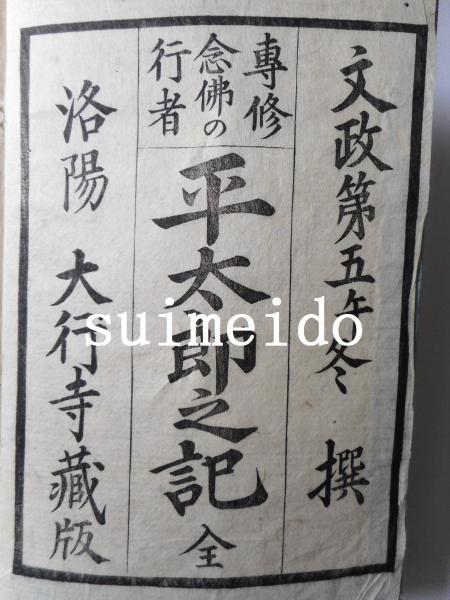 文政第五午冬 撰
專修
念佛の
行者
平太郎之記 全
洛陽 大行寺藏版
suimeido